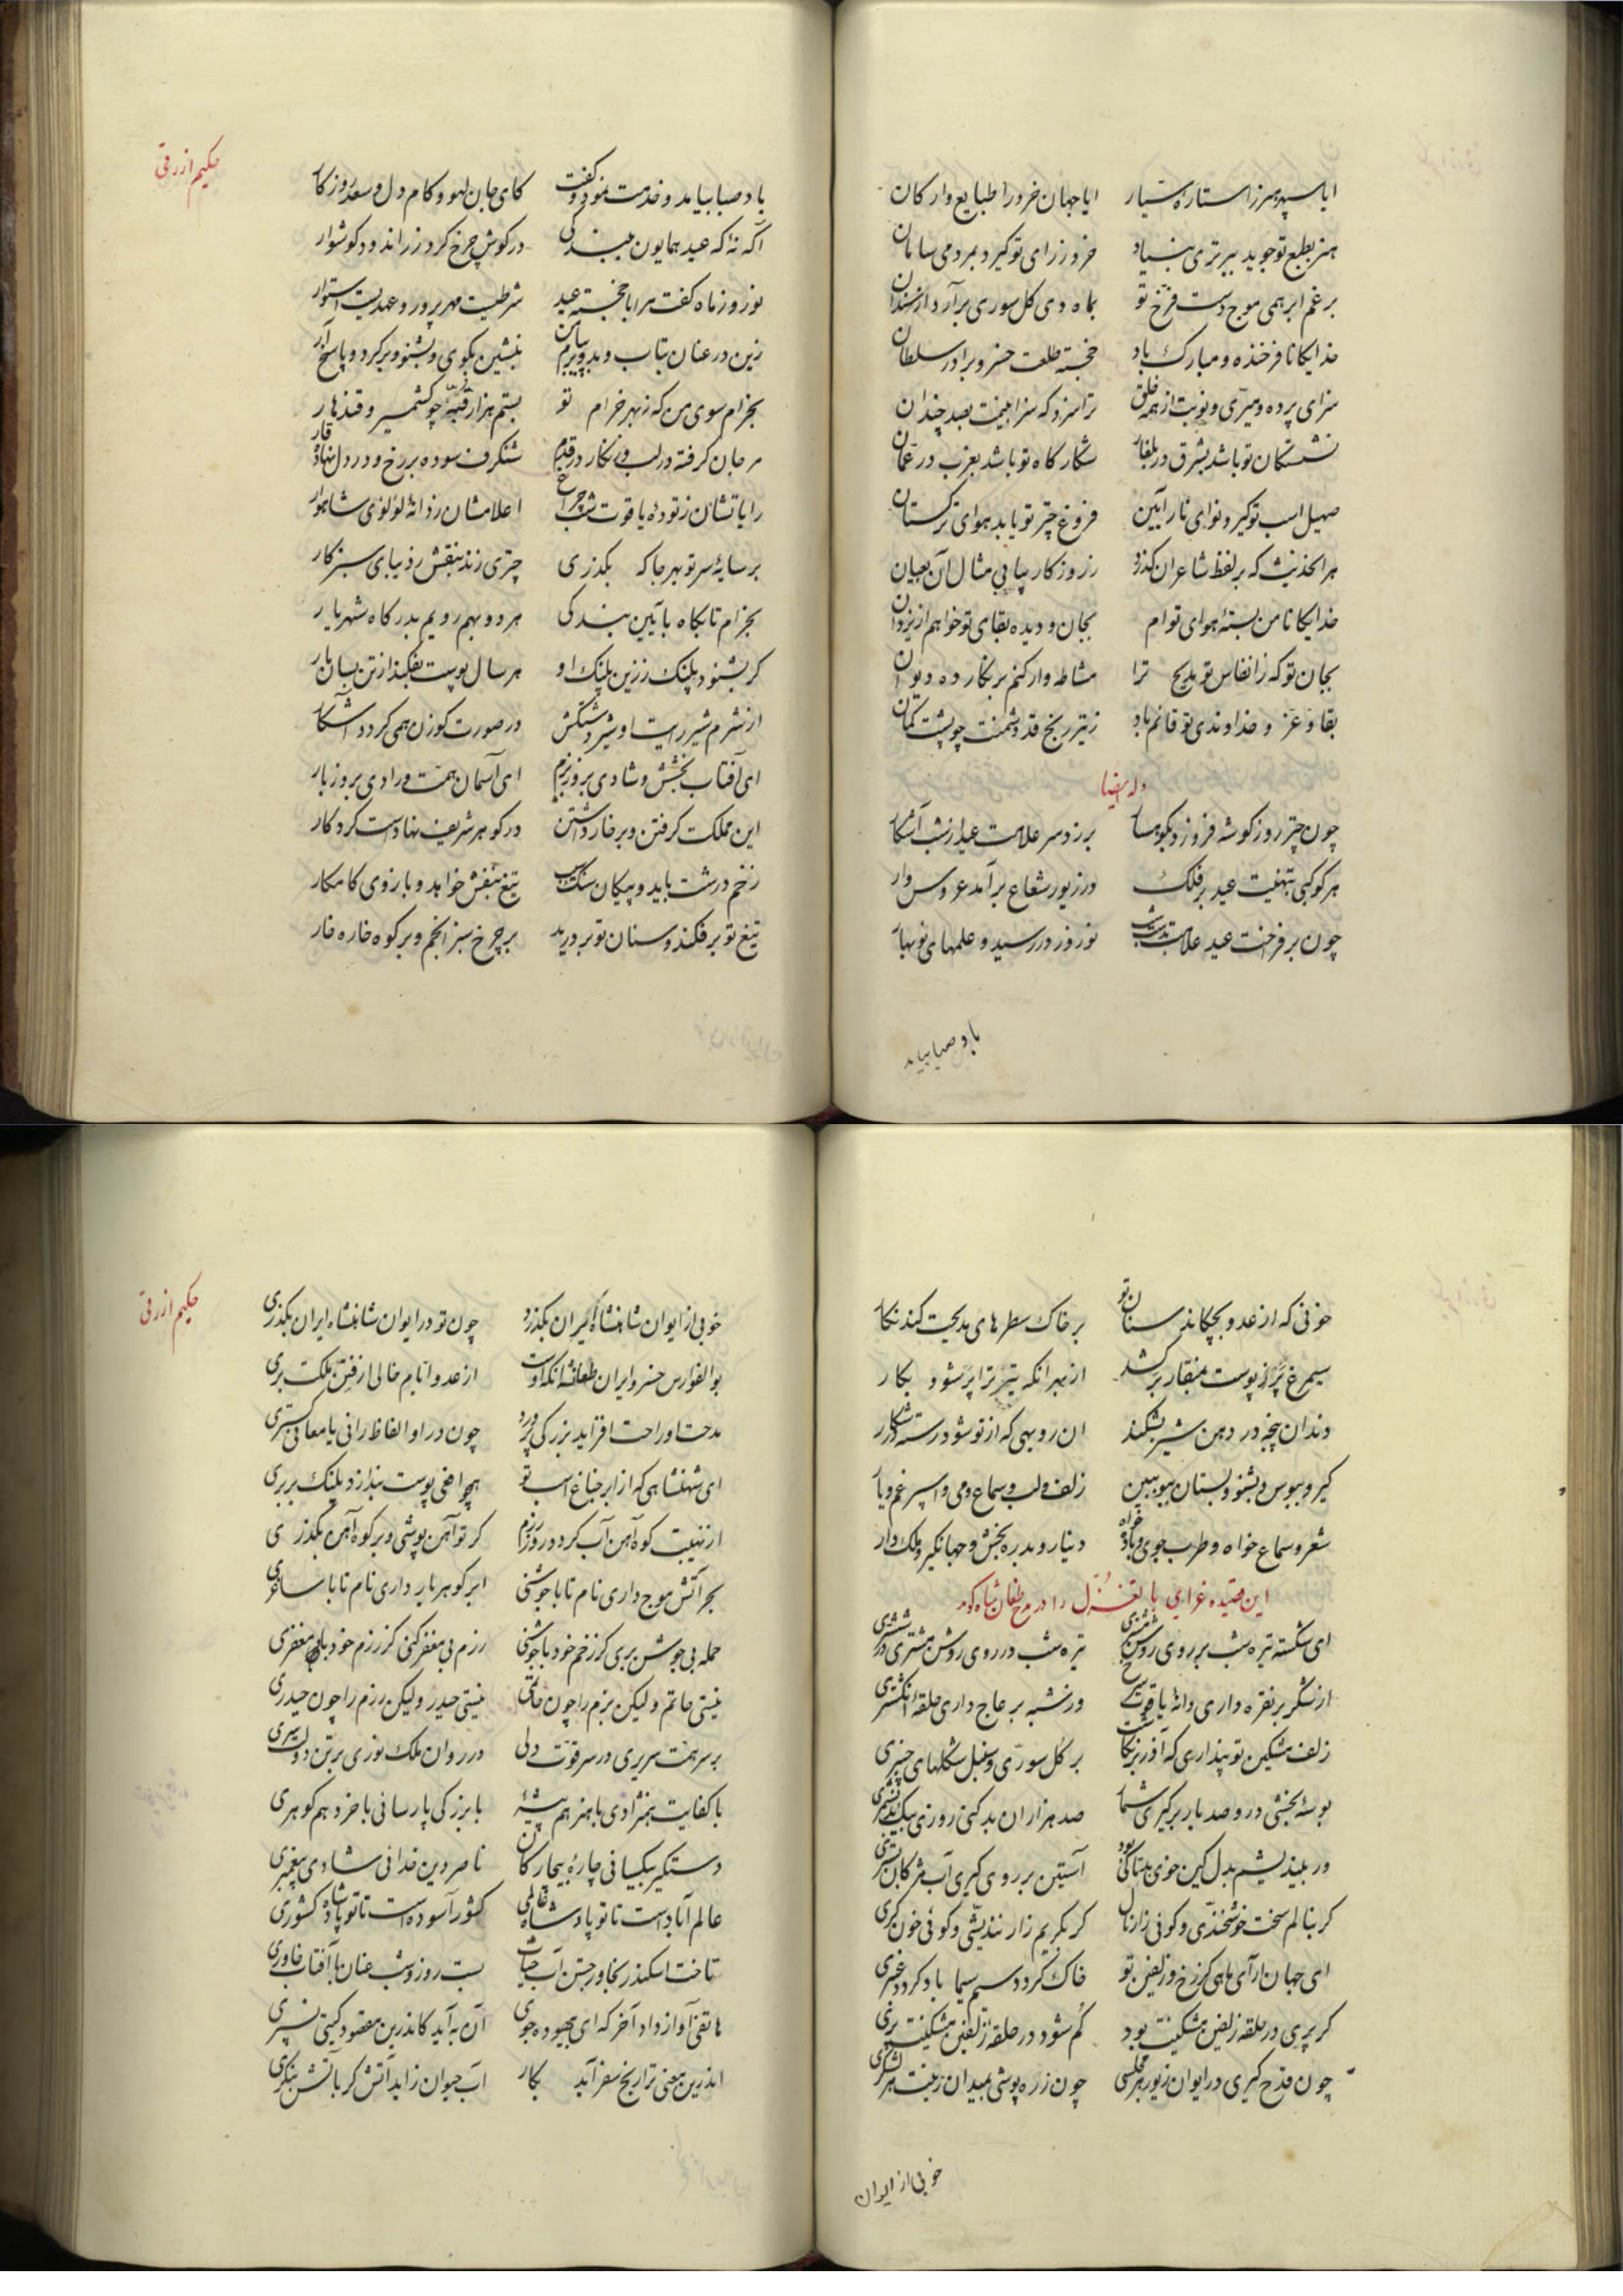 ایا سپهر هنر را ستاره سیار ایا جهان خرد را طبایع و ارکان
هنر بطبع تو جوید ببرتری بنیاد خرد ز رای تو گیرد بمردمی سامان
برغم ابر همی موج دست فرخ تو بماه دی گل سوری برآرد از سندان
خدایگانا فرخنده و مبارک باد خجسته طلعت خسرو برادر سلطان
سزای پرده و میری و نوبت از همه خلق ترا سزد که سزا بینمت بصد چندان
نشستگان تو باشد بشرق در بلغار شکارگاه تو باشد بغرب در عمان
صهیل اسب تو گیرد نوای نارآیین فروغ چتر تو یابد هوای ترکستان
هرانحدیث که بر لفظ شاعران گذرد ز روزگار بیابی مثال آن بعیان
خدایگانا من بسته هوای توام بجان و دیده بقای تو خواهم از یزدان
بجان تو که ز انفاس تو بمدیح ترا مشاطه وار کنم بر نگار ده دیوان
بقا و عز و خداوندی تو قائم باد ز تیر رنج قد دشمنت چو پشت کمان
وله ایضا
چون چتر روز گوشه فروزد بکوهسار برزد سر علامت عید از شب آشکار
هر کوکبی بتهنیت عید بر فلک در زیور شعاع برآمد عروس وار
چون بر فراخت عید علامت بدست شب نوروز در رسید و علمهای نوبهار
باد صبا بیامد
حکیم ازرقی
باد صبا بیامد و خدمت نمود و گفت کای جان لهو و کام دل و سعد روزگار
آگه نهٔ که عید همایون میندکی در گوش چرخ کرد زر اندود گوشوار
نوروز ماه گفت مرا با خجسته عید شرطیست مهرپرور و عهدیست استوار
زین در عنان بتاب و بدو پویم بیامن بنشین بگوی و بشنو و برگرد و پاسخ آر
بخرام سوی من که ز بهر خرام تو بستم هزار قبه چو کشمیر و قندهار
مرجان گرفته در لب و نگار در قدم شنگرف سوده بر رخ و در دل نهاده قار
رایاتشان ز تودهٔ یاقوت شب چراغ اعلامشان ز دانهٔ لؤلؤی شاهوار
بر سایهٔ سر تو بهر جا که بگذری چتری زند بنفش ز دیبای سبزکار
بخرام تا پگاه بآیین بندگی هر دو بهم رویم بدرگاه شهریار
گر بشنود پلنگ ز زین پلنگ او هر سال پوست بفکند از تن بسان مار
از شرم شیر رایت او شیر در شکنش در صورت گوزن همی گردد آشکار
ای آفتاب بخشش و شادی بروز بزم ای آسمان همت و رادی بروز بار
این مملکت گرفتن و برخار داشتن در گوهر شریف نهادست کردگار
زخم درشت باید و پیکان سنگ سنب تیغ بنفش خواهد و بازوی کامکار
تیغ تو برفکند و سنان تو بر درید بر چرخ سبز انجم و بر کوه خاره خار
خونی که از عدو بچکاند سنان تو بر خاک سطرهای مدیحت کند نگار
سیمرغ پر ز پوست بمنقار برکشد از بهر آنکه تیر ترا پر شود بکار
دندان پنجه در دهن شیر بشکند آن روبهی که از تو شود رسته در شکار
گیر و ببوس و بشنو و بستان ببو ببین زلف و لب و سماع و می و اسپرغم و یار
شعر و سماع خواه و طرب جوی و باده خواه دینار و بدره بخش و جهانگیر و ملک دار
این قصیده غرای با تغزل را در مدح طغان شاه گوید
ای شکسته تیره شب بر روی روشن مشتری تیره شب در روی روشن مشتری در ششتری
از شکر بر نقره داری دانهٔ یاقوت سرخ وز شبه بر عاج داری حلقهٔ انگشتری
زلف مشکین تو پنداری که آذر برنگاشت بر گل سوری و سنبل شکلهای چنبری
بوسهٔ بخشی در و صد بار برگیری شمار صد هزاران بد کنی روزی بیک بد نشمری
ور ببیند چشم بدل کین جوی بیتا کی بود آستین بر روی گیری آب مژگان بستری
گر بنالم سخت خوش خندی و گوئی زار نال گر بگریم زار نندیشی و گوئی خون گری
ای جهان آرای ماهی کز رخ و زلفین تو خاک گردد سیم سیما باد گردد عنبری
گر پری در حلقه زلفین مشکینت بود گم شود در حلقه زلفین مشکینت پری
چون قدح گیری در ایوان زیور هر مجلسی چون زره پوشی بمیدان زینت هر لشکری
خوبی از ایوان
حکیم ازرقی
خوبی از ایوان شاهنشاه ایران بگذرد چون تو در ایوان شاهنشاه ایران بگذری
بوالفوارس خسرو ایران طغانشه آنکه اوست از عدو ایام خالی از فتن ملکت بری
مدحت او راحت افزاید بزرگی پرورد چون در او الفاظ رانی یا معانی گستری
ای شهنشاهی که از ابر جناغ اسب تو همچو افعی پوست بندازد پلنگ بربری
از نهیبت کوه آهن آب گردد روز رزم گر تو آهن پوشی و بر کوه آهن بگذری
بحر آتش موج داری نام تا با جوشنی ابر گوهربار داری نام تا با ساغری
حمله بی جوشن بری کز زخم خود با جوشنی رزم بی مغفر کنی کز رزم خود با مغفری
نیستی حاتم ولیکن بزم را چون حاتمی نیستی حیدر ولیکن رزم را چون حیدری
بر سر همت سریری در سر قوت دلی در روان ملک نوری بر تن دولت سری
با کفایت همنژادی با هنر هم پیشهٔ با بزرگی پارسائی با خرد هم گوهری
دستگیر بیکسانی چارهٔ بیچارگان ناصر دین خدائی شادی پیغمبری
عالم آبادست تا تو پادشاه عالمی کشور آسوده است تا تو پادشاه کشوری
تاخت اسکندر بخاور جستن آب حیات بست روز و شب عنان با آفتاب خاوری
هاتفی آواز داد آخر که ای بیهوده جوی آن به آید کاندرین مقصود گیتی نسپری
اندرین معنی ترا رنج سفر آید بکار آب حیوان زاید آتش گر بآتش بنگری